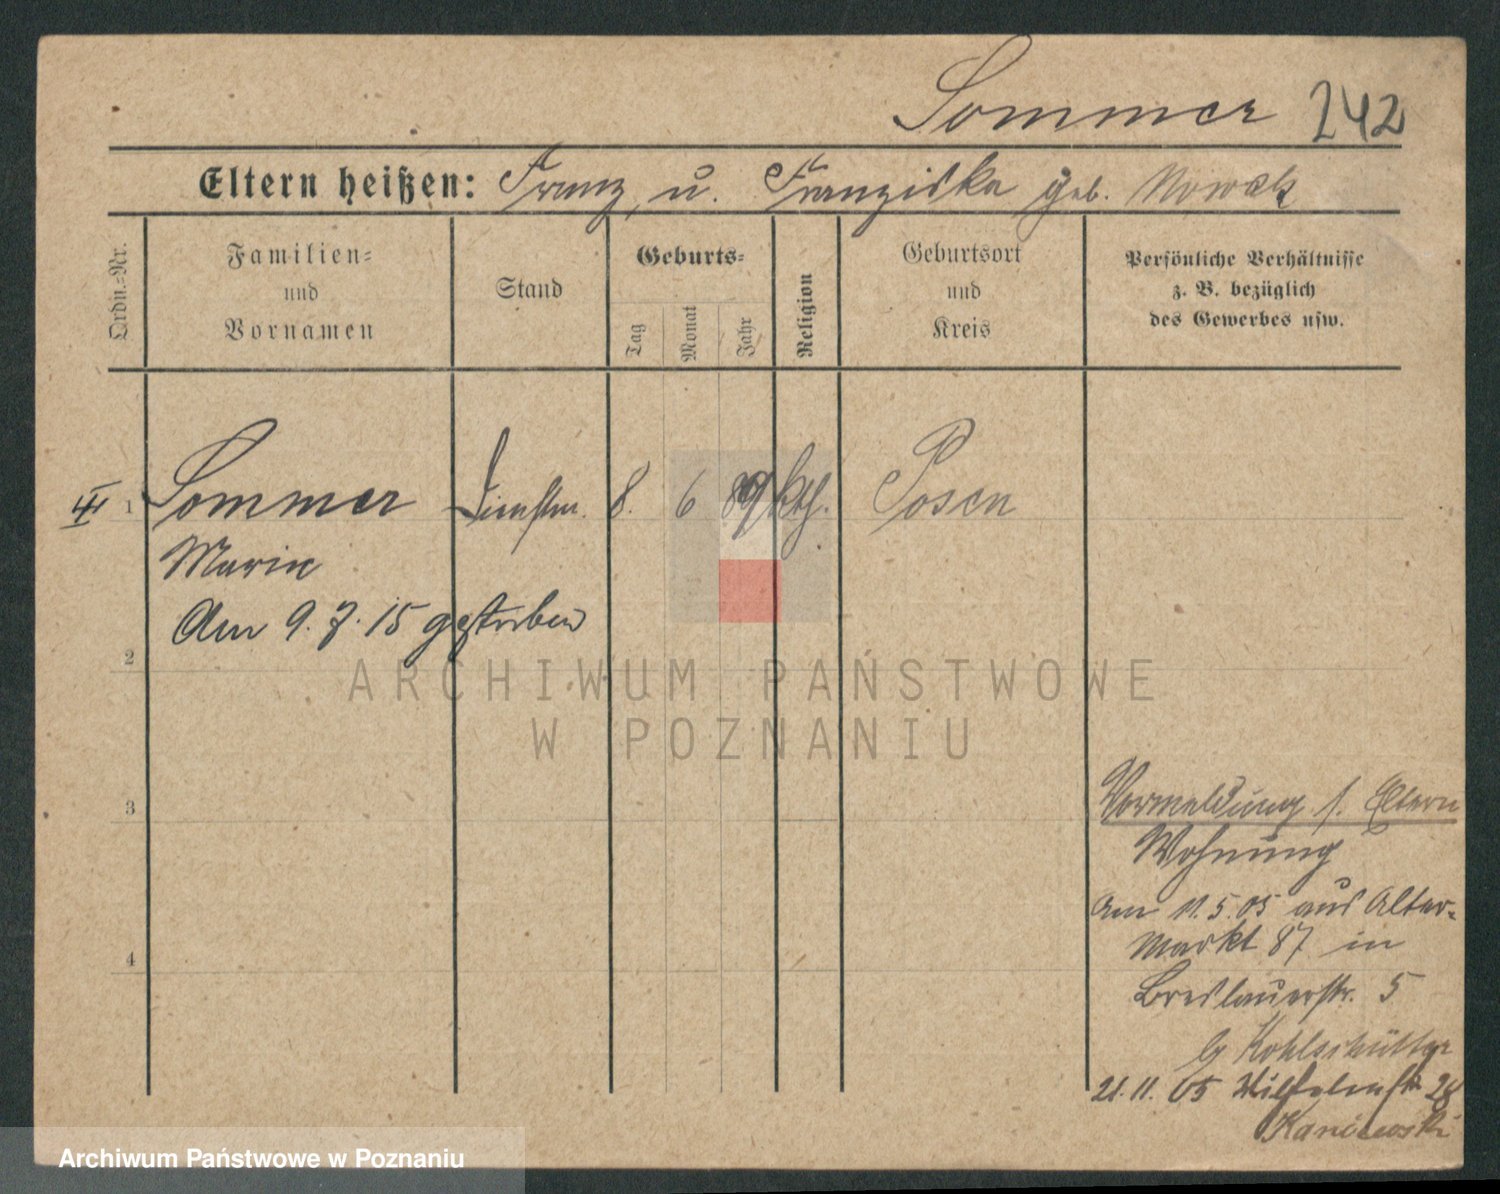 Sommer 242
Eltern heißen: Franz u. Franziska geb. Nowak
Ordn.=Nr.
Familien=
und
Vornamen
Stand
Geburts=
Tag
Monat
Jahr
Religion
Geburtsort
und
Kreis
Persönliche Verhältnisse
z. B. bezüglich
des Gewerbes usw.
III 1 Sommer Dienstm. 8. 6 89 kth. Posen
Marie
Am 9. 7. 15 gestorben
2
ARCHIWUM PAŃSTWOWE
W POZNANIU
3
Vormeldung s. Eltern
Wohnung
Am 11.5.05 aus Alter-
markt 87 in
4
Breslauerstr. 5
b/ Kohlschütter
21.11.05 Wilhelmstr 28
Kaniewski
Archiwum Państwowe w Poznaniu